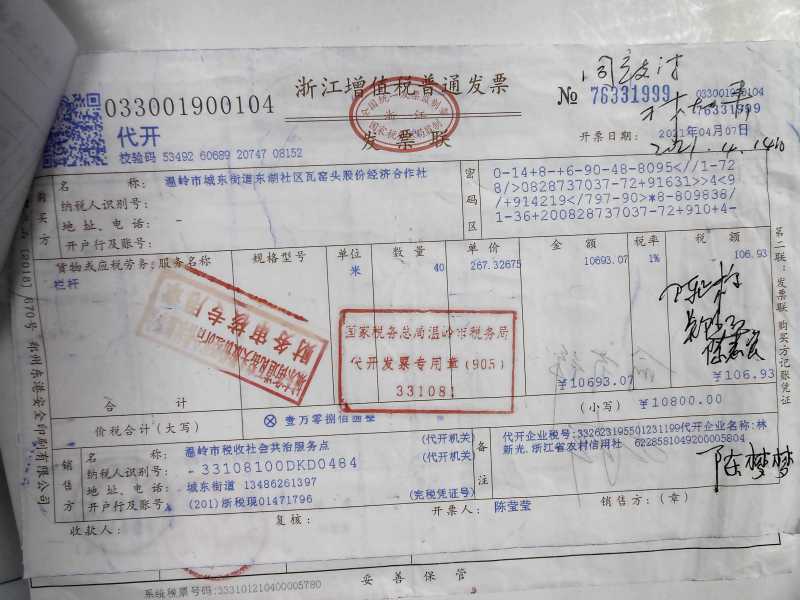 浙江增值税普通发票
发票联
033001900104
代开
校验码 53492 60689 20747 08152
№ 76331999
033001900104
76331999
开票日期: 2021年04月07日
同意支付
2021.4.14
购买方
名称: 温岭市城东街道东湖社区瓦窑头股份经济合作社
纳税人识别号:
地址、电话:
开户行及账号:
密码区
0-14+8+-6-90-48-8095<//1-72
8/>0828737037-72+91631>>4<9
/+914219</797-90>*8-809838/
1-36+200828737037-72+910+4-
货物或应税劳务、服务名称 规格型号 单位 数量 单价 金额 税率 税额
栏杆 米 40 267.32675 10693.07 1% 106.93
财务审核专用章
国家税务总局温岭市税务局
代开发票专用章(905)
331081
合计 ¥10693.07 ¥106.93
价税合计(大写) ⊗ 壹万零捌佰圆整 (小写) ¥10800.00
销售方
名称: 温岭市税收社会共治服务点 (代开机关)
纳税人识别号: -33108100DKD0484 (代开机关)
地址、电话: 城东街道 13486261397
开户行及账号: (201)浙税现01471796 (完税凭证号)
备注
代开企业税号:332623195501231199代开企业名称:林
新光.浙江省农村信用社 6228581049200005804
陈梦梦
收款人: 复核: 开票人: 陈莹莹 销售方:(章)
第二联:发票联 购买方记账凭证
(2018) 670号 郑州东港安全印刷有限公司
系统税票号码:333101210400005780
妥善保管